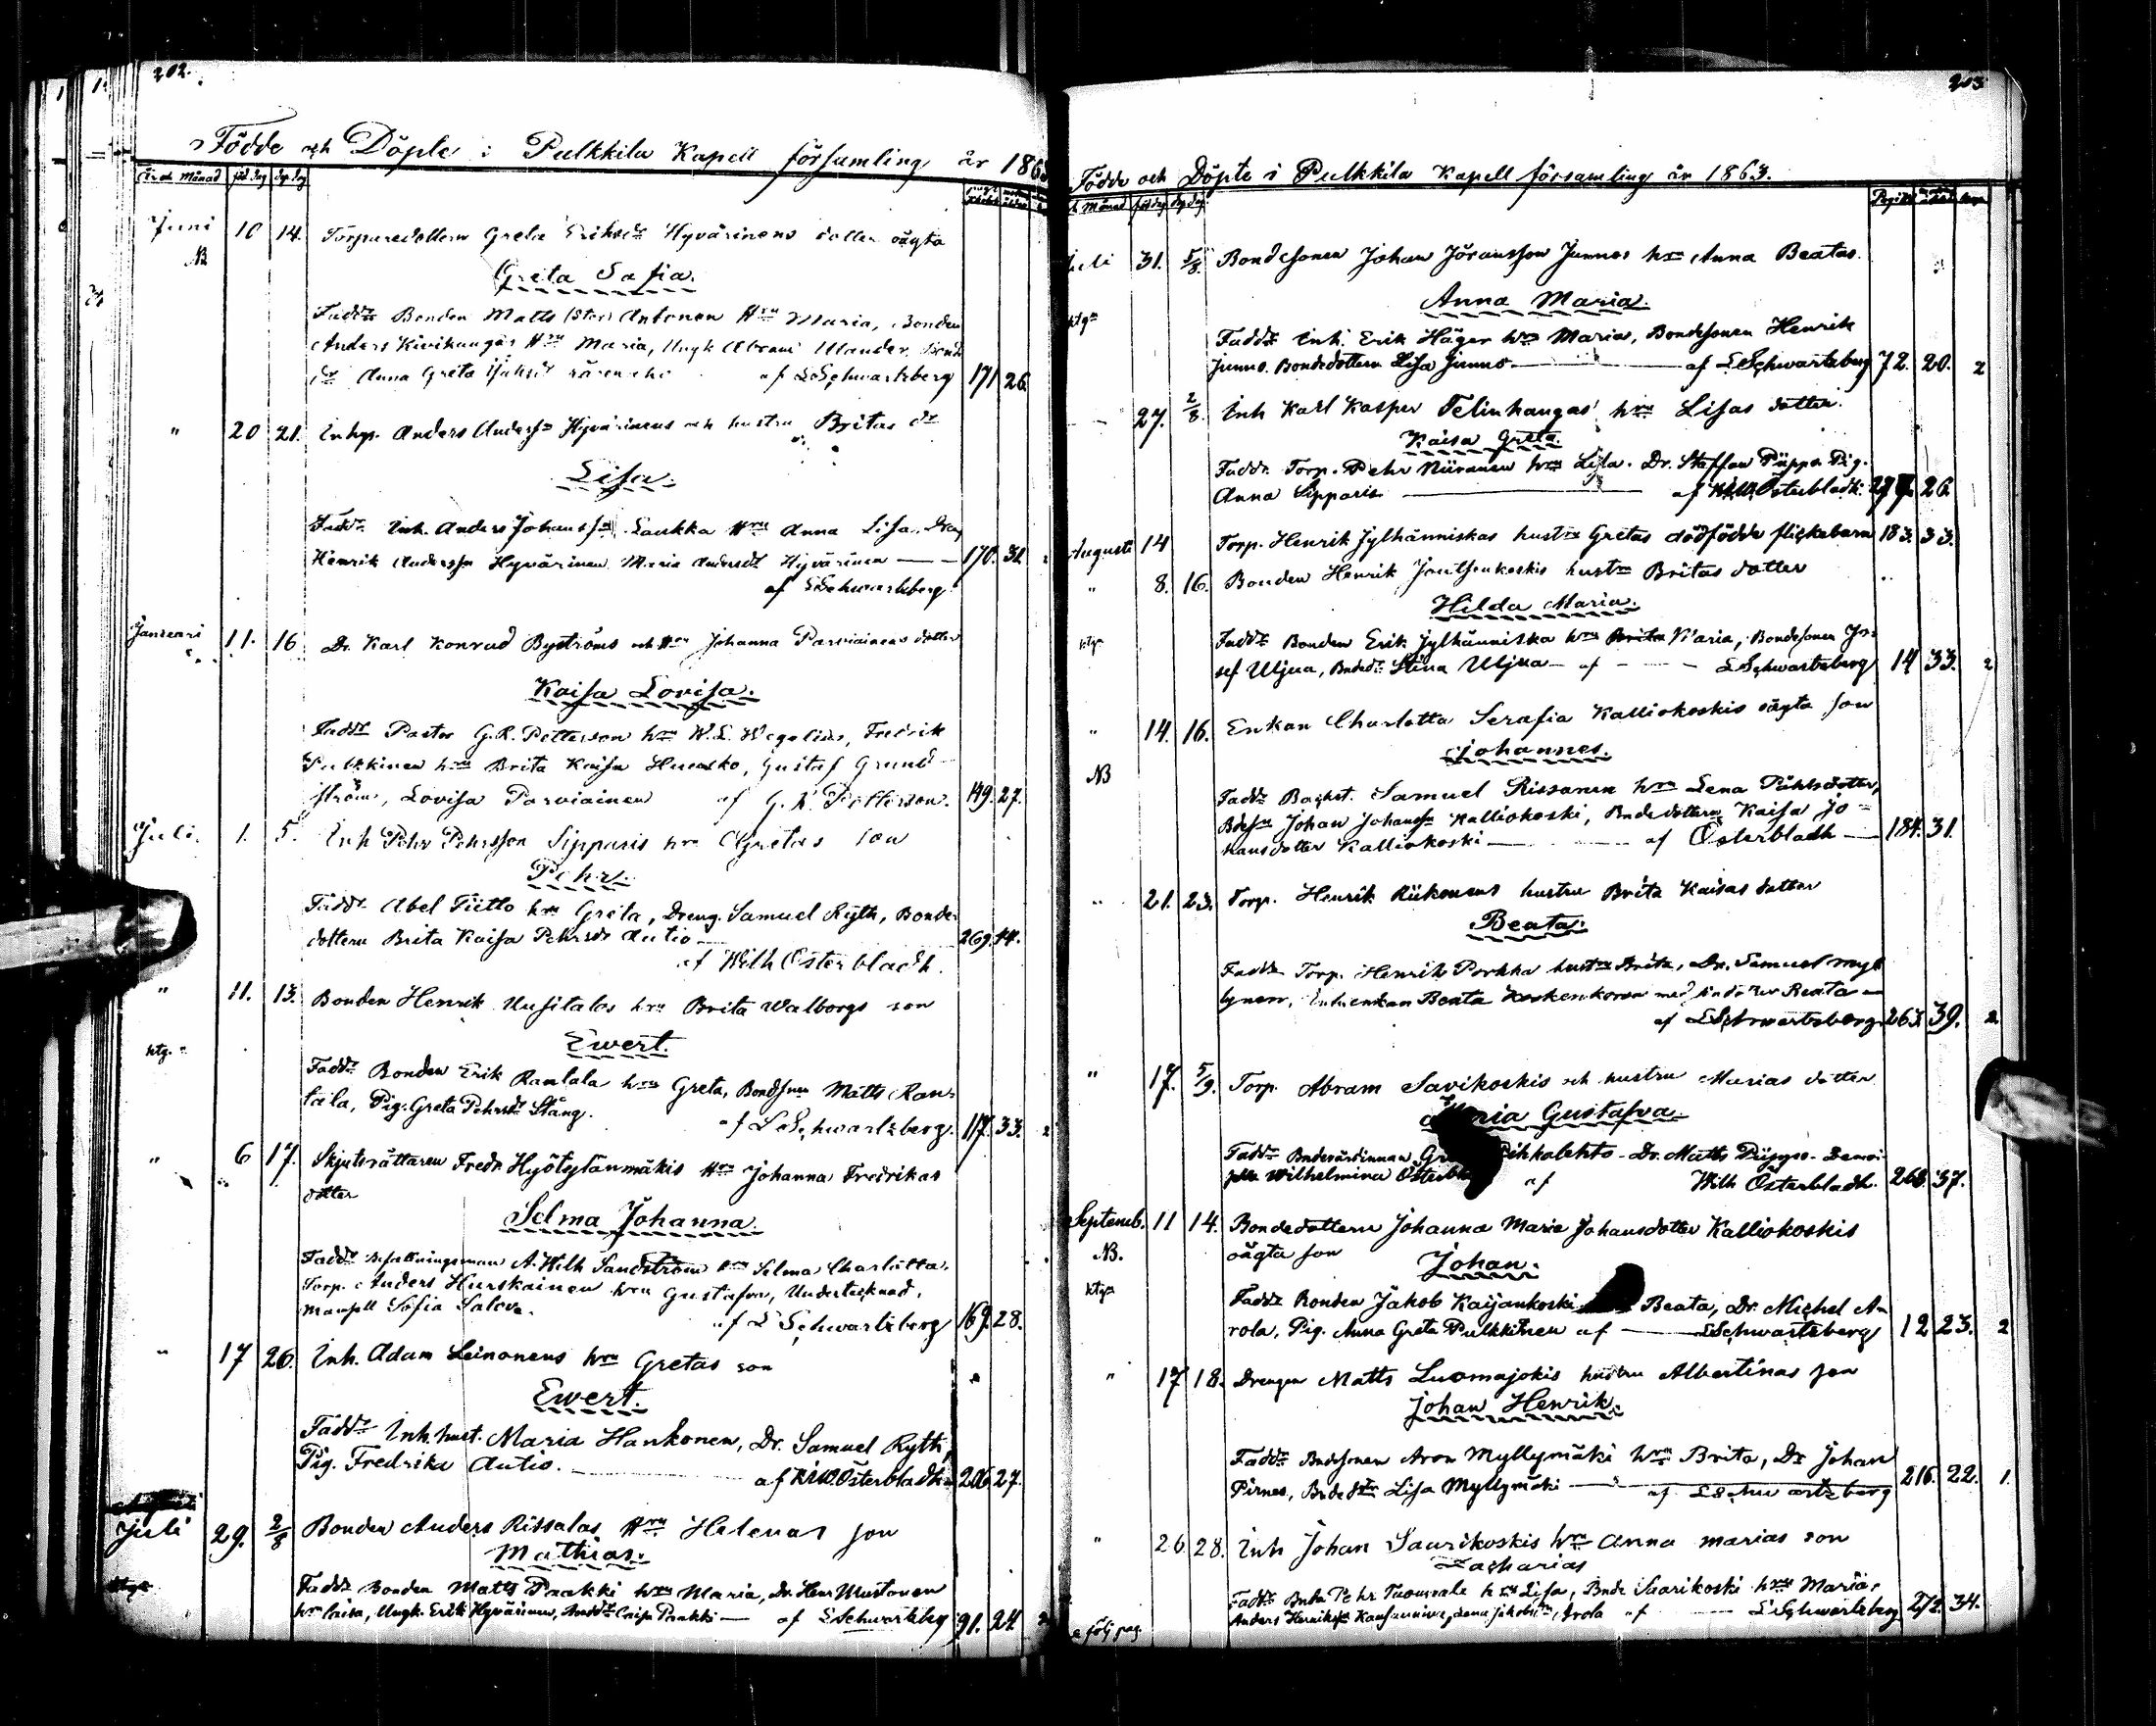 202.
Födde och Döpte i Pulkkila Kapell församling år 186
År och Månad föd. Dag döp. Dag
Juni 10 14. Torparedottern Greta Eriksdr Hyvärinens dotter oägta
NB
Greta Sofia.
Faddr Bonden Matts (Stor) Antonen Hru Maria, Bonden
Anders Kivikangas Hru Maria, Ungk Abram Ulander, Bond
dr Anna Greta af LSchwartzberg 171 26.
" 20 21. Inhys. Anders Anderss. Hyvärinens och hustru Britas dr
Lisa.
Faddr Inh. Anders Johanss Laukka Hru Anna Lisa, Dreng
Henrik Anderssn Hyvärinen Maria Andersdt Hyvärinen 170. 31.
af LSchwartzberg
Januari 11. 16 Dr. Karl Konrad Byströms och Hru Johanna Parviainens dotter
Kaisa Lovisa.
Faddr Pastor G.R. Petterson hru W.L. Wegelius, Fredrik
Pulkkinen hru Brita Kaisa Hurasko, Gustaf Grund-
ström, Lovisa Parviainen af G. R. Petterson. 149. 27.
Juli. 1. 5. Inh Pehr Pehrsson Sipparis hru Gretas son
Pehr.
Faddr Abel Tiitto hru Greta, Dreng. Samuel Ryth, Bonde-
dottern Brita Kaisa Pehrsdr Autio 269. 44.
af Wilh Österbladh.
" 11. 13. Bonden Henrik Uusitalos hru Brita Walborgs son
Ewert.
ktg.
Faddr Bonden Erik Rantala hru Greta, Bondsonen Matts Ran-
tala, Pig. Greta Pehrsdr Stång. af LSchwartzberg. 117. 33. 2
" 6 17. Skjutsrättaren Fredr. Hyötylänmäkis Hru Johanna Fredrikas
dotter
Selma Johanna.
Faddr Befallningsman A. Wilh Sandström hru Selma Charlotta,
Torp. Anders Hurskainen hru Gustafva, Undertecknad,
Mamsell Sofia af L Schwartzberg 169. 28.
" 17 26. Inh. Adam Leinonens hru Gretas son
Ewert.
Faddr Inh. hust. Maria Hankonen, Dr. Samuel Ryth,
Pig. Fredrika Autio. af Österbladh 206 27.
Juli 29. 2/8 Bonden Anders Rissalas Hru Helenas son
Mathias.
Faddr Bonden Matts Paakki hru Maria, Dr. Henr Mustonen
hru Caisa, Ungk. Erik Hyvärinen, Bnddr Caisa Paakki af LSchwartzbg 91. 24
203
Födde och Döpte i Pulkkila Kapell församling år 1863.
Månad föd dag döp dag
Juli 31. 5/8. Bondesonen Johan Jöransson Junnos hru Anna Beatas
Anna Maria.
ktgn
Faddr Inh. Erik Häger hru Maria, Bondesonen Henrik
Junno. Bondedottern Lisa Junno af LSchwartzberg 72. 20. 2
27. 2/8. Inh Karl Kasper Telinkangas' hru Lisas dotter.
Kaisa Greta.
Faddr. Torp. Pehr Niiranen hru Lisa. Dr. Staffan Piippo. Pig.
Anna Sipparis af Österbladh. 26
Augusti 14 Torp. Henrik Jylhänniskas hustru Gretas dödfödda flickebarn 183. 33.
" 8. 16. Bonden Henrik Joutsenkoskis hustru Britas dotter
Hilda Maria.
ktgn
Faddr Bonden Erik Jylhänniska hru Maria, Bondesonen Jo-
sef Uljua, Bndedr. Stina Uljua af LSchwartzberg 14 33. 2
" 14. 16. Enkan Charlotta Serafia Kalliokoskis oägta son
Johannes.
NB
Faddr Backst. Samuel Rissanen hru Lena Påhlsdotter,
Bdesn Johan Johanssn Kalliokoski, Bndedottern Kaisa Jo-
hansdotter Kalliokoski af Österbladh 184. 31.
" 21. 23. Torp. Henrik Riikonens hustru Brita Kaisas dotter
Beata.
Faddr Torp. Henrik Porkka hustru Brita, Dr. Samuel Myl
lynen, Inh. enkan Beata Koskenkorva med sin dotter Beata
af LSchwartzberg 263. 39. 2
" 17. 5/9. Torp. Abram Savikoskis och hustru Marias dotter
ria Gustafva.
Faddr Bndevärdinnan Pihkalehto. Dr. Matts Piippo. Demoi-
selle Wilhelmina af Wilh Österbladh. 268. 37.
Septemb. 11 14. Bondedottern Johanna Maria Johansdotter Kalliokoskis
NB. oägta son
Johan.
ktgn
Faddr Bonden Jakob Kaijankoski Beata, Dr. Michel A-
rola, Pig. Anna Greta Pulkkinen af LSchwartzberg 12 23. 2
" 17 18. Drengen Matts Luomajokis hustru Albertinas son
Johan Henrik.
Faddr Bndsonen Aron Myllymäki hru Brita, Dr Johan
Pirnes, Bndedtr Lisa Myllymäki af LSchwartzberg 216. 22. 1.
" 26 28. Inh Johan Saarikoskis hru Anna Marias son
Zacharias
Faddr Bndn Pehr Tuomaala hru Lisa, Bnde Saarikoski hru Maria,
Anders Henrikss Arola af LSchwartzberg 272. 34.
följ pag.